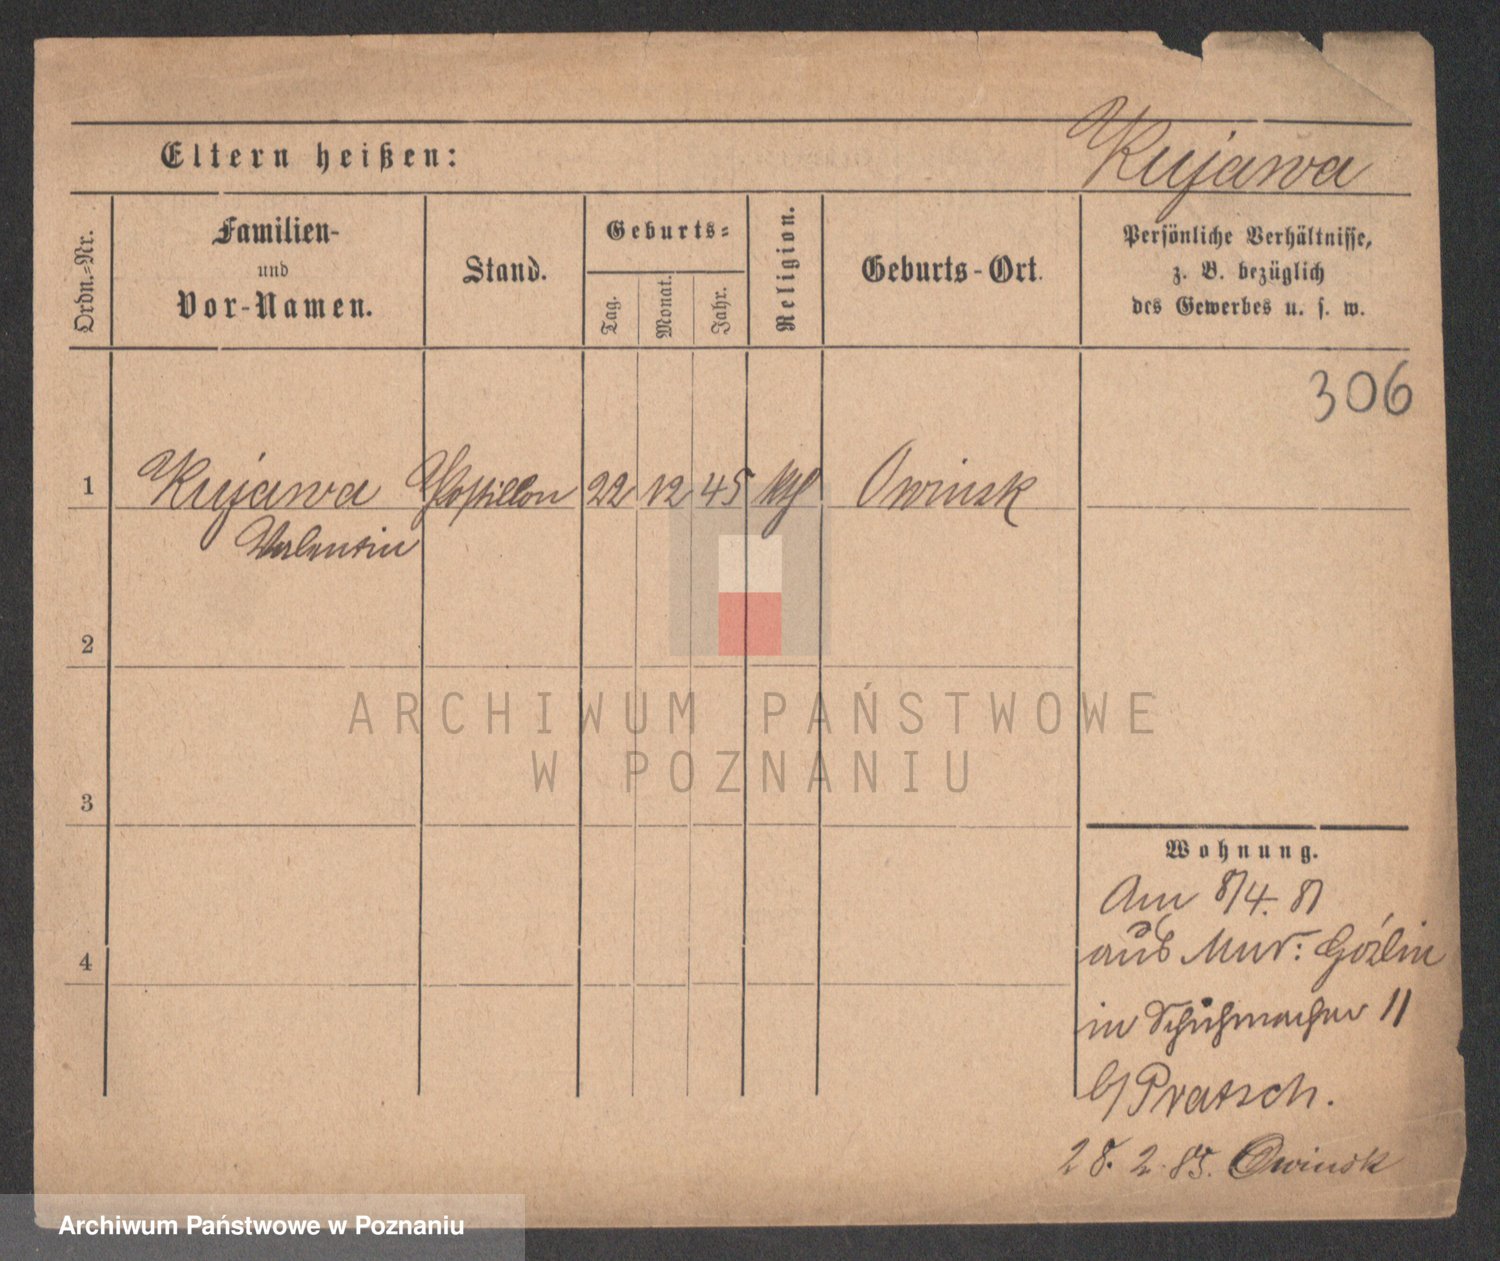 Kujawa
Eltern heißen:
Ordn.-Nr.
Familien-
und
Vor-Namen.
Stand.
Geburts-
Tag.
Monat.
Jahr.
Religion.
Geburts-Ort.
Persönliche Verhältnisse,
z. B. bezüglich
des Gewerbes u. s. w.
306
1 Kujawa Postillon 22 12 45 kth Owinsk
Valentin
2
3
4
Wohnung.
Am 8/4. 81
aus Mur: Goślin
in Schuhmacher 11
b/ Pratsch.
28. 2. 85. Owinsk
ARCHIWUM PAŃSTWOWE
W POZNANIU
Archiwum Państwowe w Poznaniu